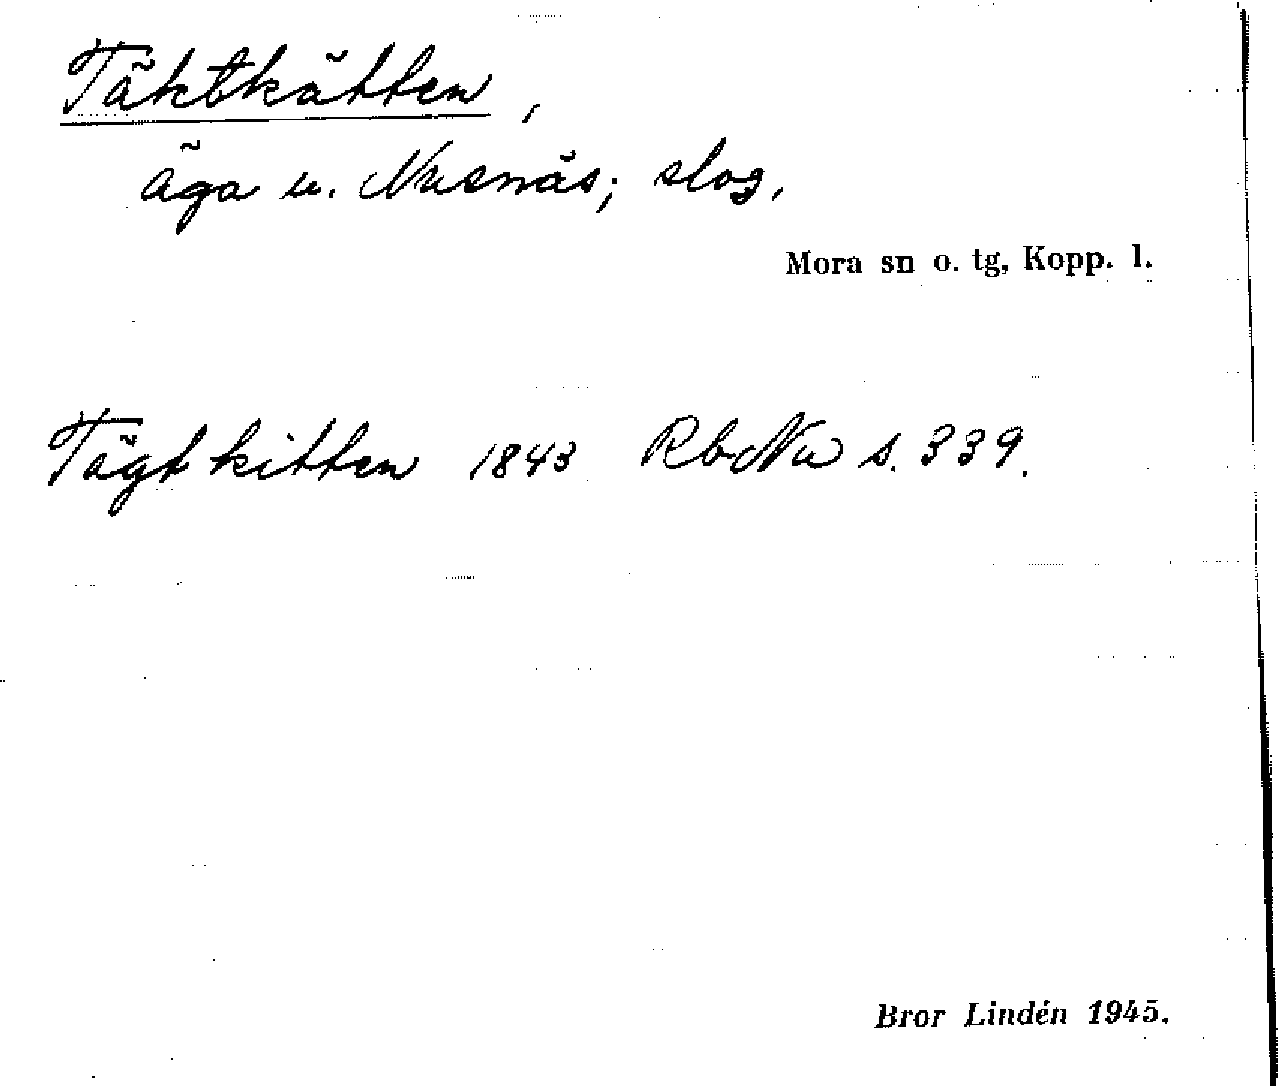 Täktkätten,
äga u. Nusnäs; slog,
Mora sn o. tg, Kopp. l.
Tägtkitten 1843 RbNu s. 339.
Bror Lindén 1945.